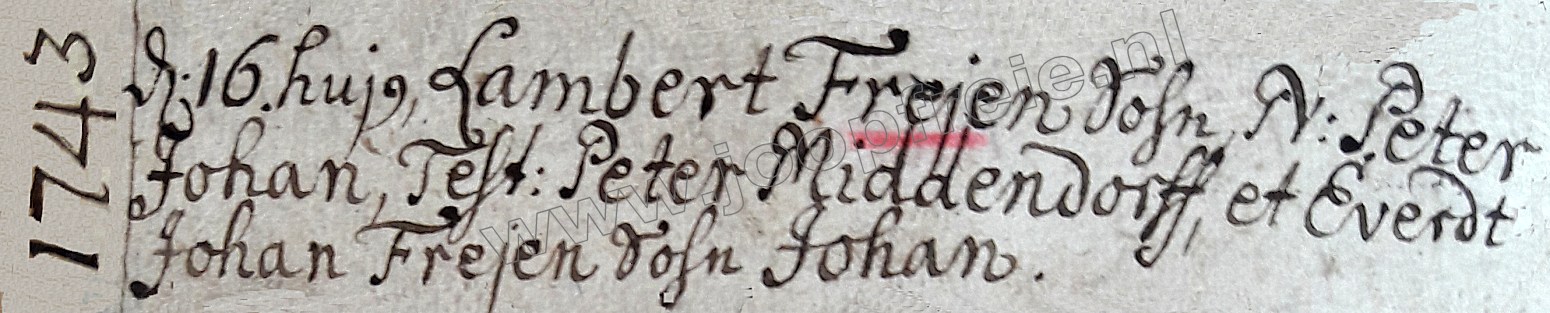 1743
d: 16. hujꝰ, Lambert Frejen Sohn, N: Peter
Johan, Test: Peter Middendorff, et Everdt
Johan Frejen Sohn Johan.
www.joopfreie.nl